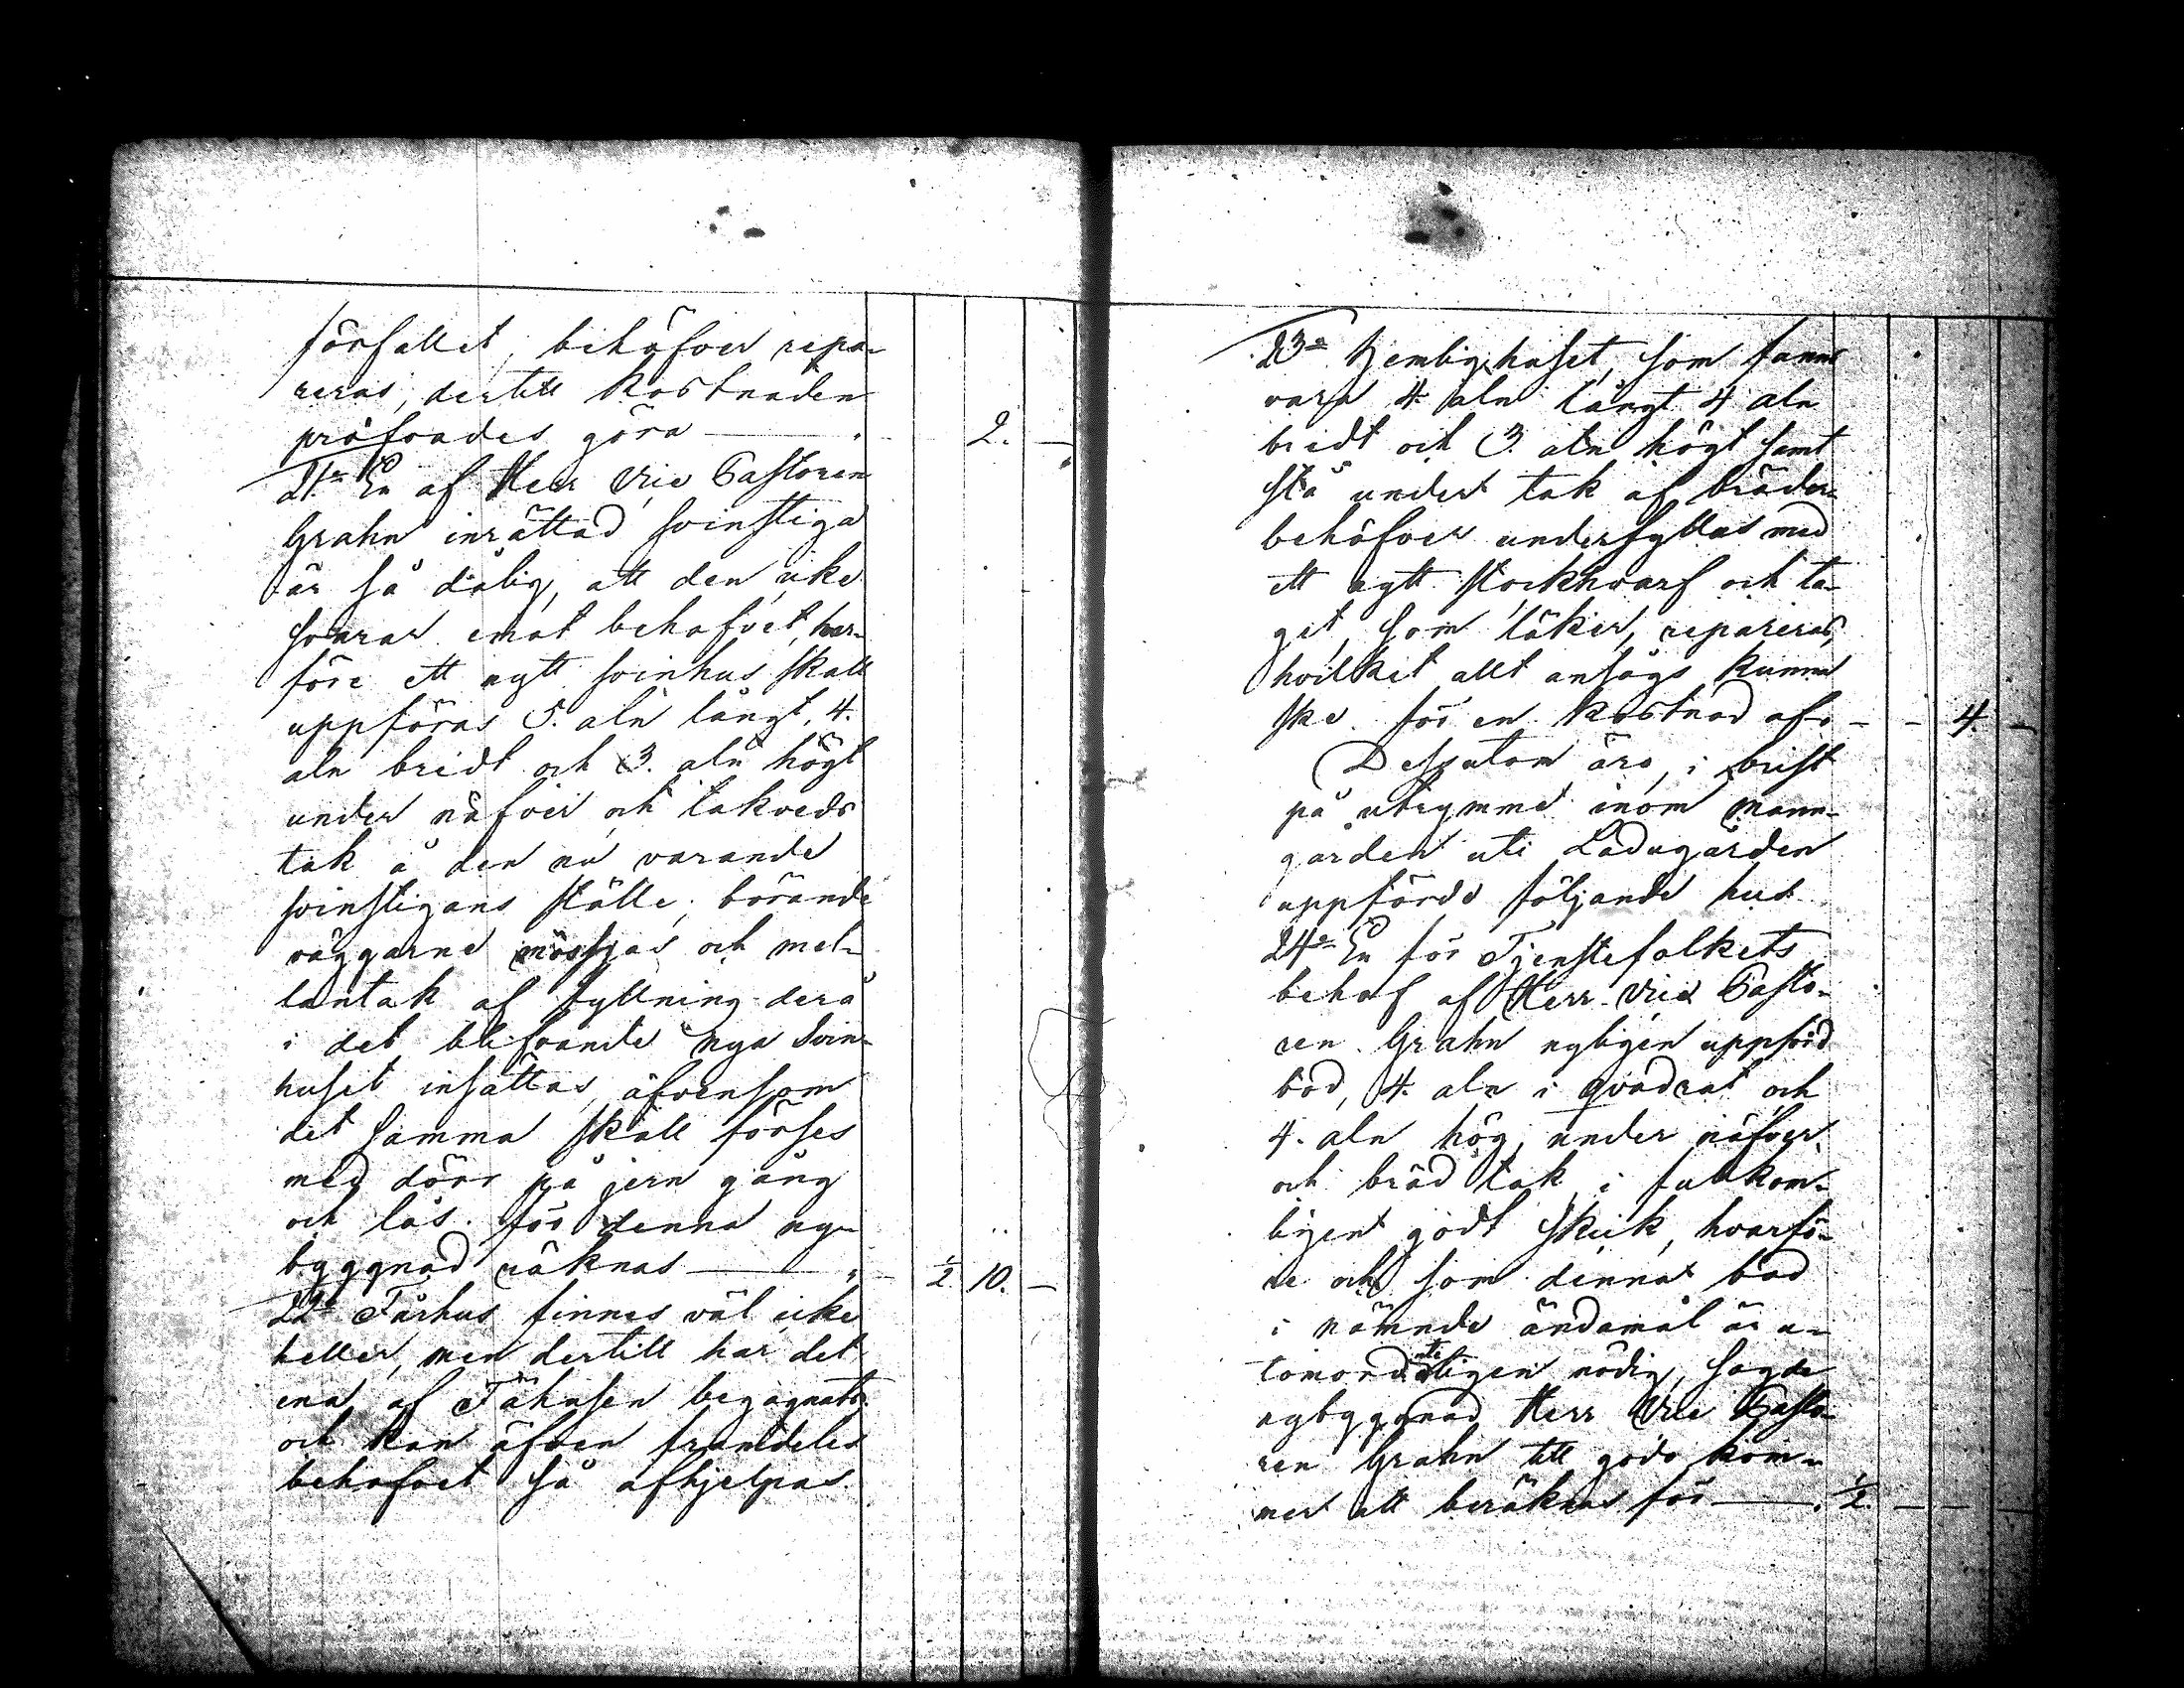 förfallet, behöfver repa-
reras, dertill kostnaden
pröfvades göra — 2. —
21:a En af Herr Vice Pastoren
Grahn inrättad svinstiga
är så dålig, att den icke
svarar emot behofvet, hvar-
före ett nytt svinhus skall
uppföras 5. aln långt, 4.
aln bredt och 3. aln högt
under näfver och takveds
tak å den nu varande
svinstigans ställe; börande
väggarne mossjas och mel-
lantak af fyllning derå
i det blifvande nya Svin-
huset insättas, äfvensom
det samma skall förses
med dörr på jern gång
och lås. för denna ny-
byggnad räknas — ½ 10. —
22:a Fårhus finnes väl icke
heller, men dertill har det
ena af Fähusen begagnats
och kan äfven framdeles
behofvet så afhjelpas.
23:a Hemlighuset, som fanns
vara 4. aln långt 4 aln
bredt och 3. aln högt samt
stå under tak af bräder
behöfver underfyllas med
ett nytt stockhvarf och ta-
get, som läker, repareras,
hvilket allt ansågs kunna
ske för en kostnad af - - 4. -
Dessutom äro, i brist
på utrymme inom mann-
gården uti Ladugården
uppförde följande hus
24:a En för Tjenstefolkets
behof af Herr Vice Pasto-
ren Grahn nyligen uppförd
bod, 4. aln i qvadrat och
4. aln hög, under näfver
och bräd tak i fullkom-
ligen godt skick, hvarfö-
re och som denna bod
i nämnde ändamål är u-
tomordentligen nödig, sagde
nybyggnad Herr Vice Pasto-
ren Grahn till godo kom-
mer att beräknas för — ½. — —